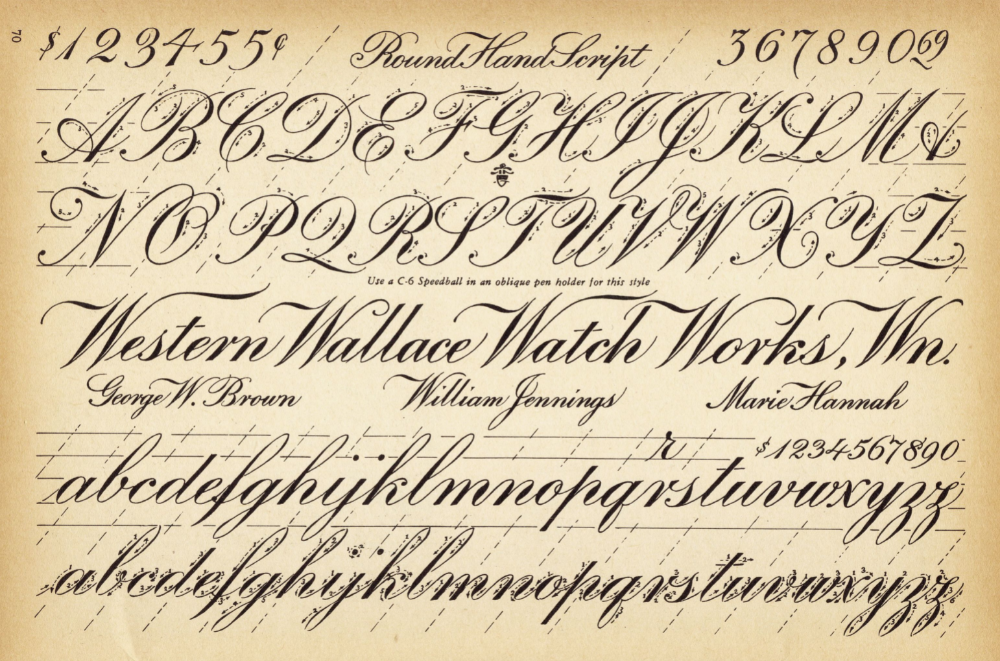 70
$123455¢ Round Hand Script 3678909
ABCDEFGHIJKLMA
NOPQRSTUVWXYZ
Use a C-6 Speedball in an oblique pen holder for this style
Western Wallace Watch Works, Wn.
George W. Brown William Jennings Marie Hannah
r $1234567890
abcdefghijklmnopqrstuvwxyzz
abcdefghijklmnopqrstuvwxyzz